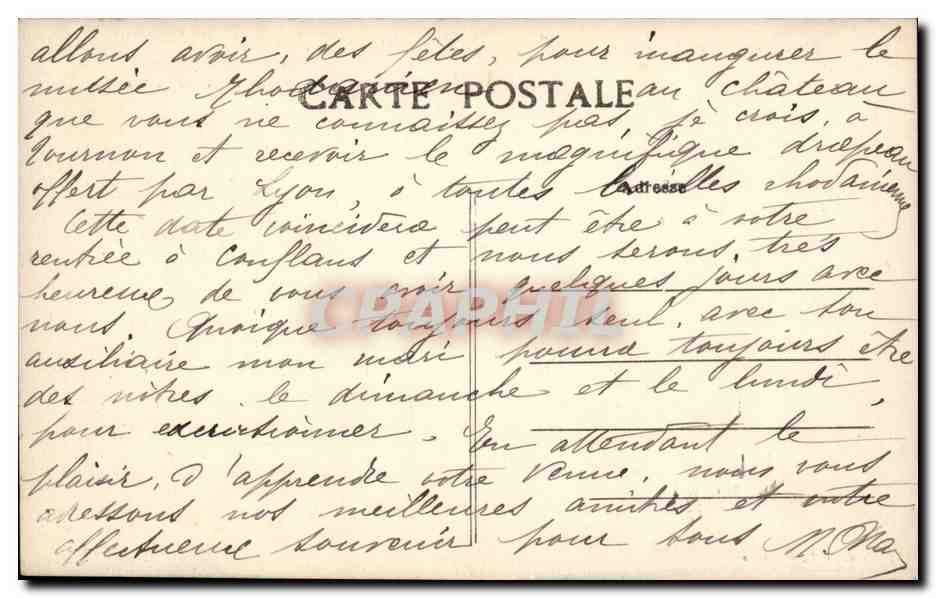 allons avoir, des fêtes, pour inaugurer le
musée Rhodanien au château
CARTE POSTALE
que vous ne connaissez pas, je crois, à
Tournon et recevoir le magnifique drapeau
offert par Lyon, à toutes les villes rhodanienne
Adresse
Cette date coincidera peut être à votre
rentrée à Conflans et nous serons, très
heureux, de vous avoir, quelques jours avec
nous. Quoique toujours seul, avec son
auxiliaire mon mari pourra toujours être
des nôtres, le dimanche et le lundi,
pour excursionner. En attendant le
plaisir, d'apprendre votre venue, nous vous
adressons nos meilleures amitiés et notre
affectueux souvenir pour tous
CPAPHIL